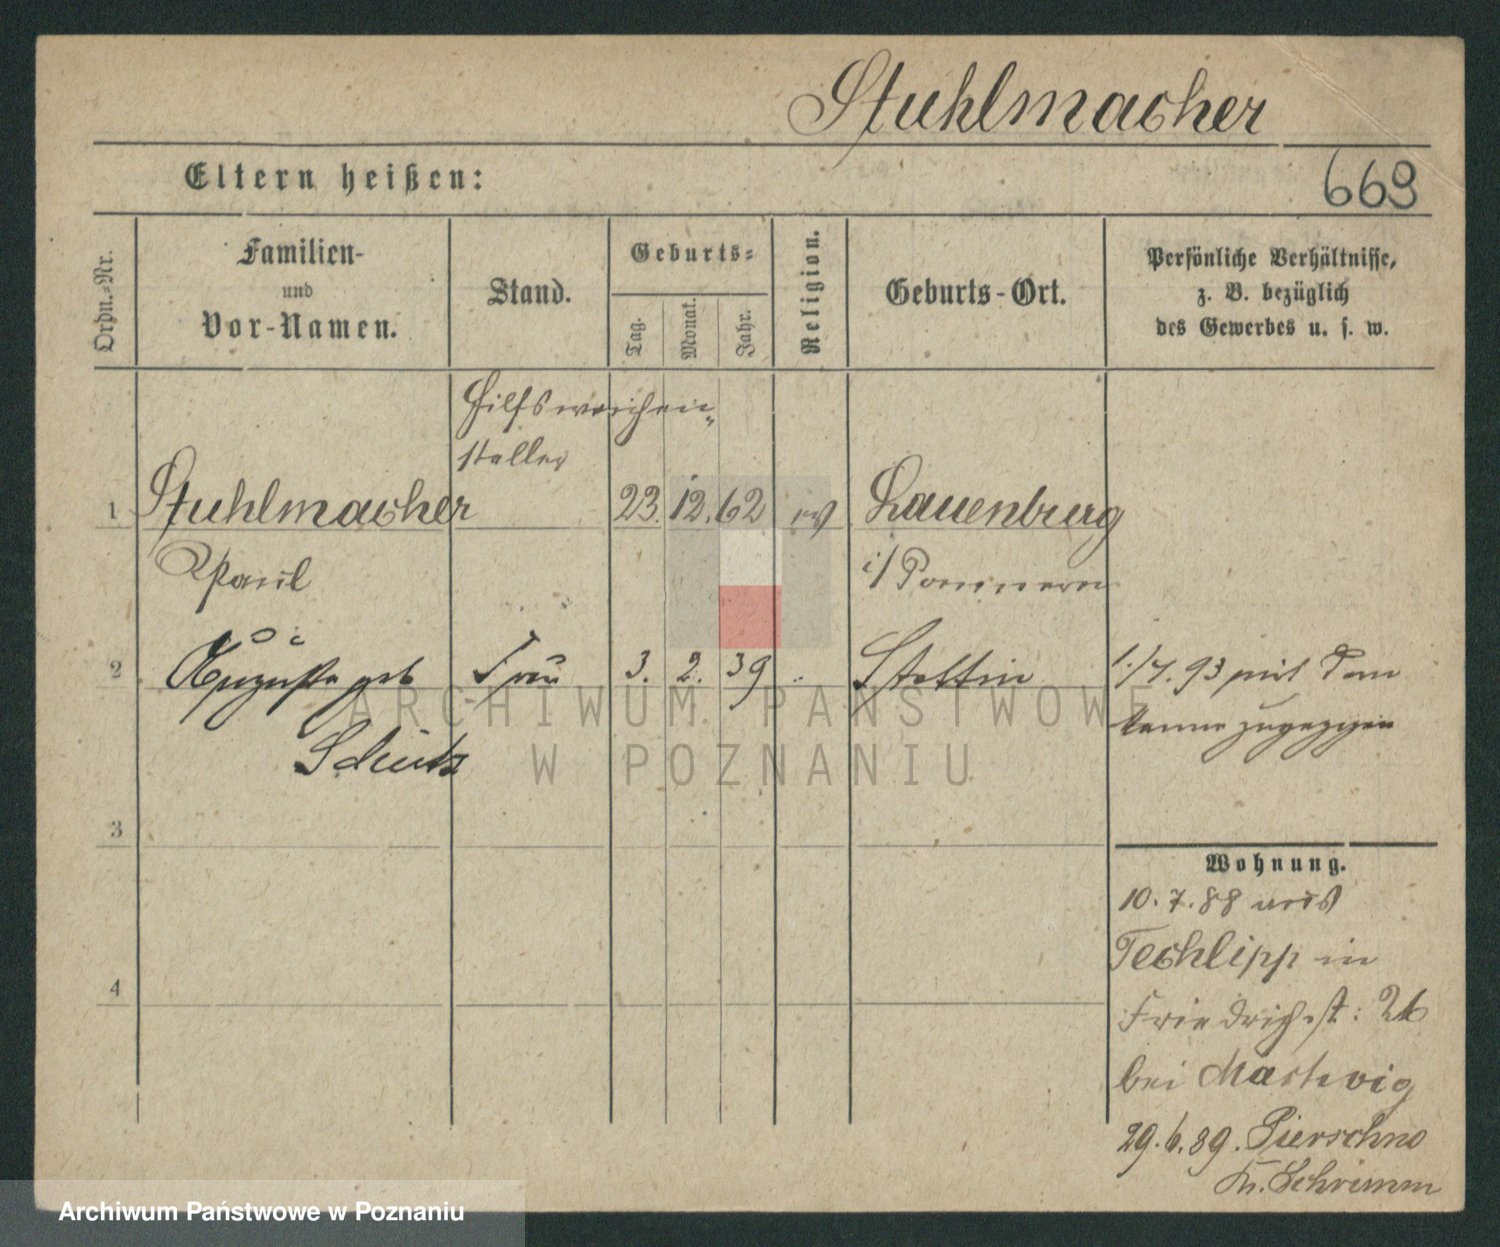 Stuhlmacher
Eltern heißen:
669
Ordn.-Nr.
Familien-
und
Vor-Namen.
Stand.
Geburts-
Tag.
Monat.
Jahr.
Religion.
Geburts-Ort.
Persönliche Verhältnisse,
z. B. bezüglich
des Gewerbes u. s. w.
Hilfsweichen-
steller
1 Stuhlmacher 23. 12. 62 ev Lauenburg
Paul i/ Pommern
2 Auguste geb Frau 3. 2. 39 " Stettin 1./4. 93 mit
Schütz zugezogen
3
Wohnung.
10. 7. 88 aus
Techlipp in
4
Friedrichst: 26
bei
29. 6. 89. Pierschno
Kr. Schrimm
ARCHIWUM PAŃSTWOWE
W POZNANIU
Archiwum Państwowe w Poznaniu